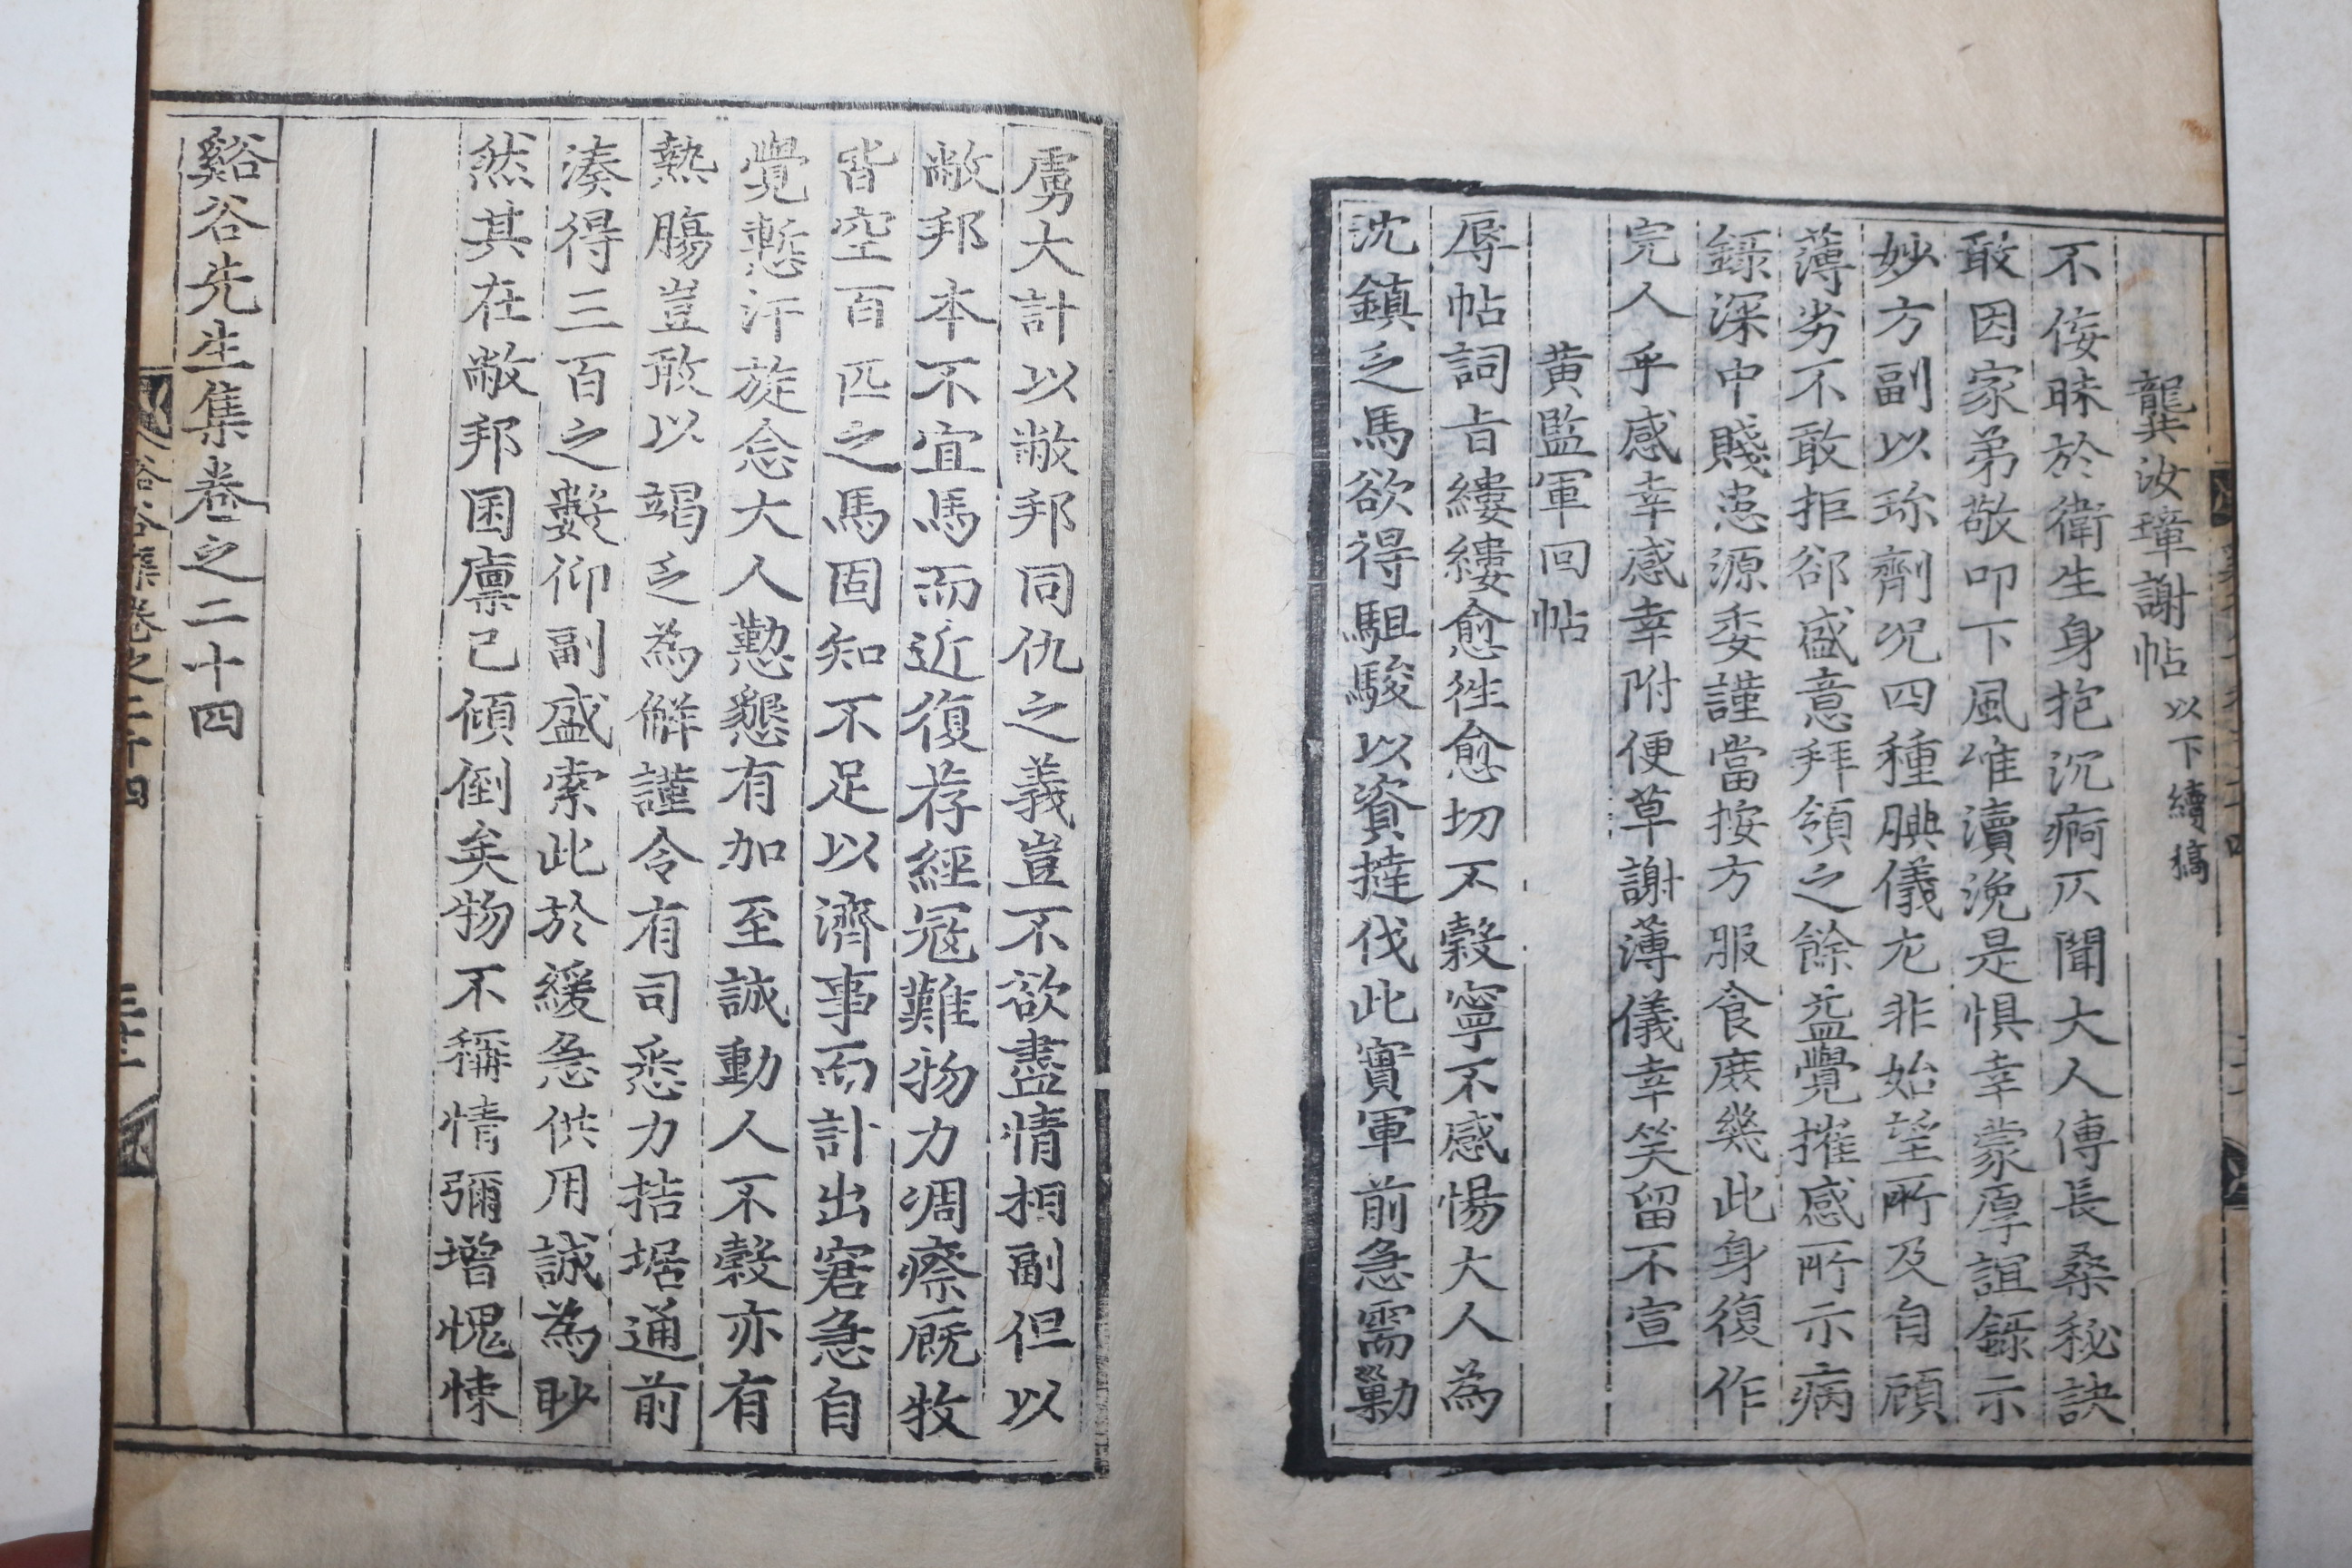 龔汝璋謝帖 以下續稿
不佞昧於衛生身抱沉痾仄聞大人傳長桑秘訣
敢因家弟敬叩下風唯瀆浼是惧幸蒙厚誼錄示
妙方副以珎劑况四種腆儀尤非始望所及自顧
薄劣不敢拒郤盛意拜領之餘益覺摧感所示病
錄深中賤恙源委謹當按方服食庶幾此身復作
完人乎感幸感幸附便草謝薄儀幸笑留不宣
黄監軍回帖
辱帖詞旨縷縷愈徃愈切不穀寧不感愓大人為
沈鎮乏馬欲得駔駿以資撻伐此實軍前急需勦
虜大計以敝邦同仇之義豈不欲盡情相副但以
敝邦本不宜馬而近復荐經冦難物力凋瘵厩牧
皆空百匹之馬固知不足以濟事而計出窘急自
覺慙汗旋念大人懃懇有加至誠動人不穀亦有
熱膓豈敢以竭乏為觧謹令有司悉力拮据通前
湊得三百之數仰副盛索此於緩急供用誠為眇
然其在敝邦囷廩已傾倒矣物不稱情彌增愧悚
谿谷先生集卷之二十四
谿谷集卷之二十四